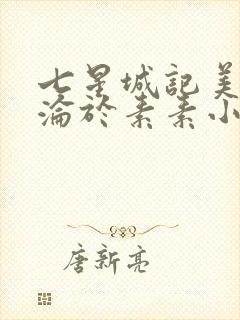 七星城記美
淪於素素小
唐新亮